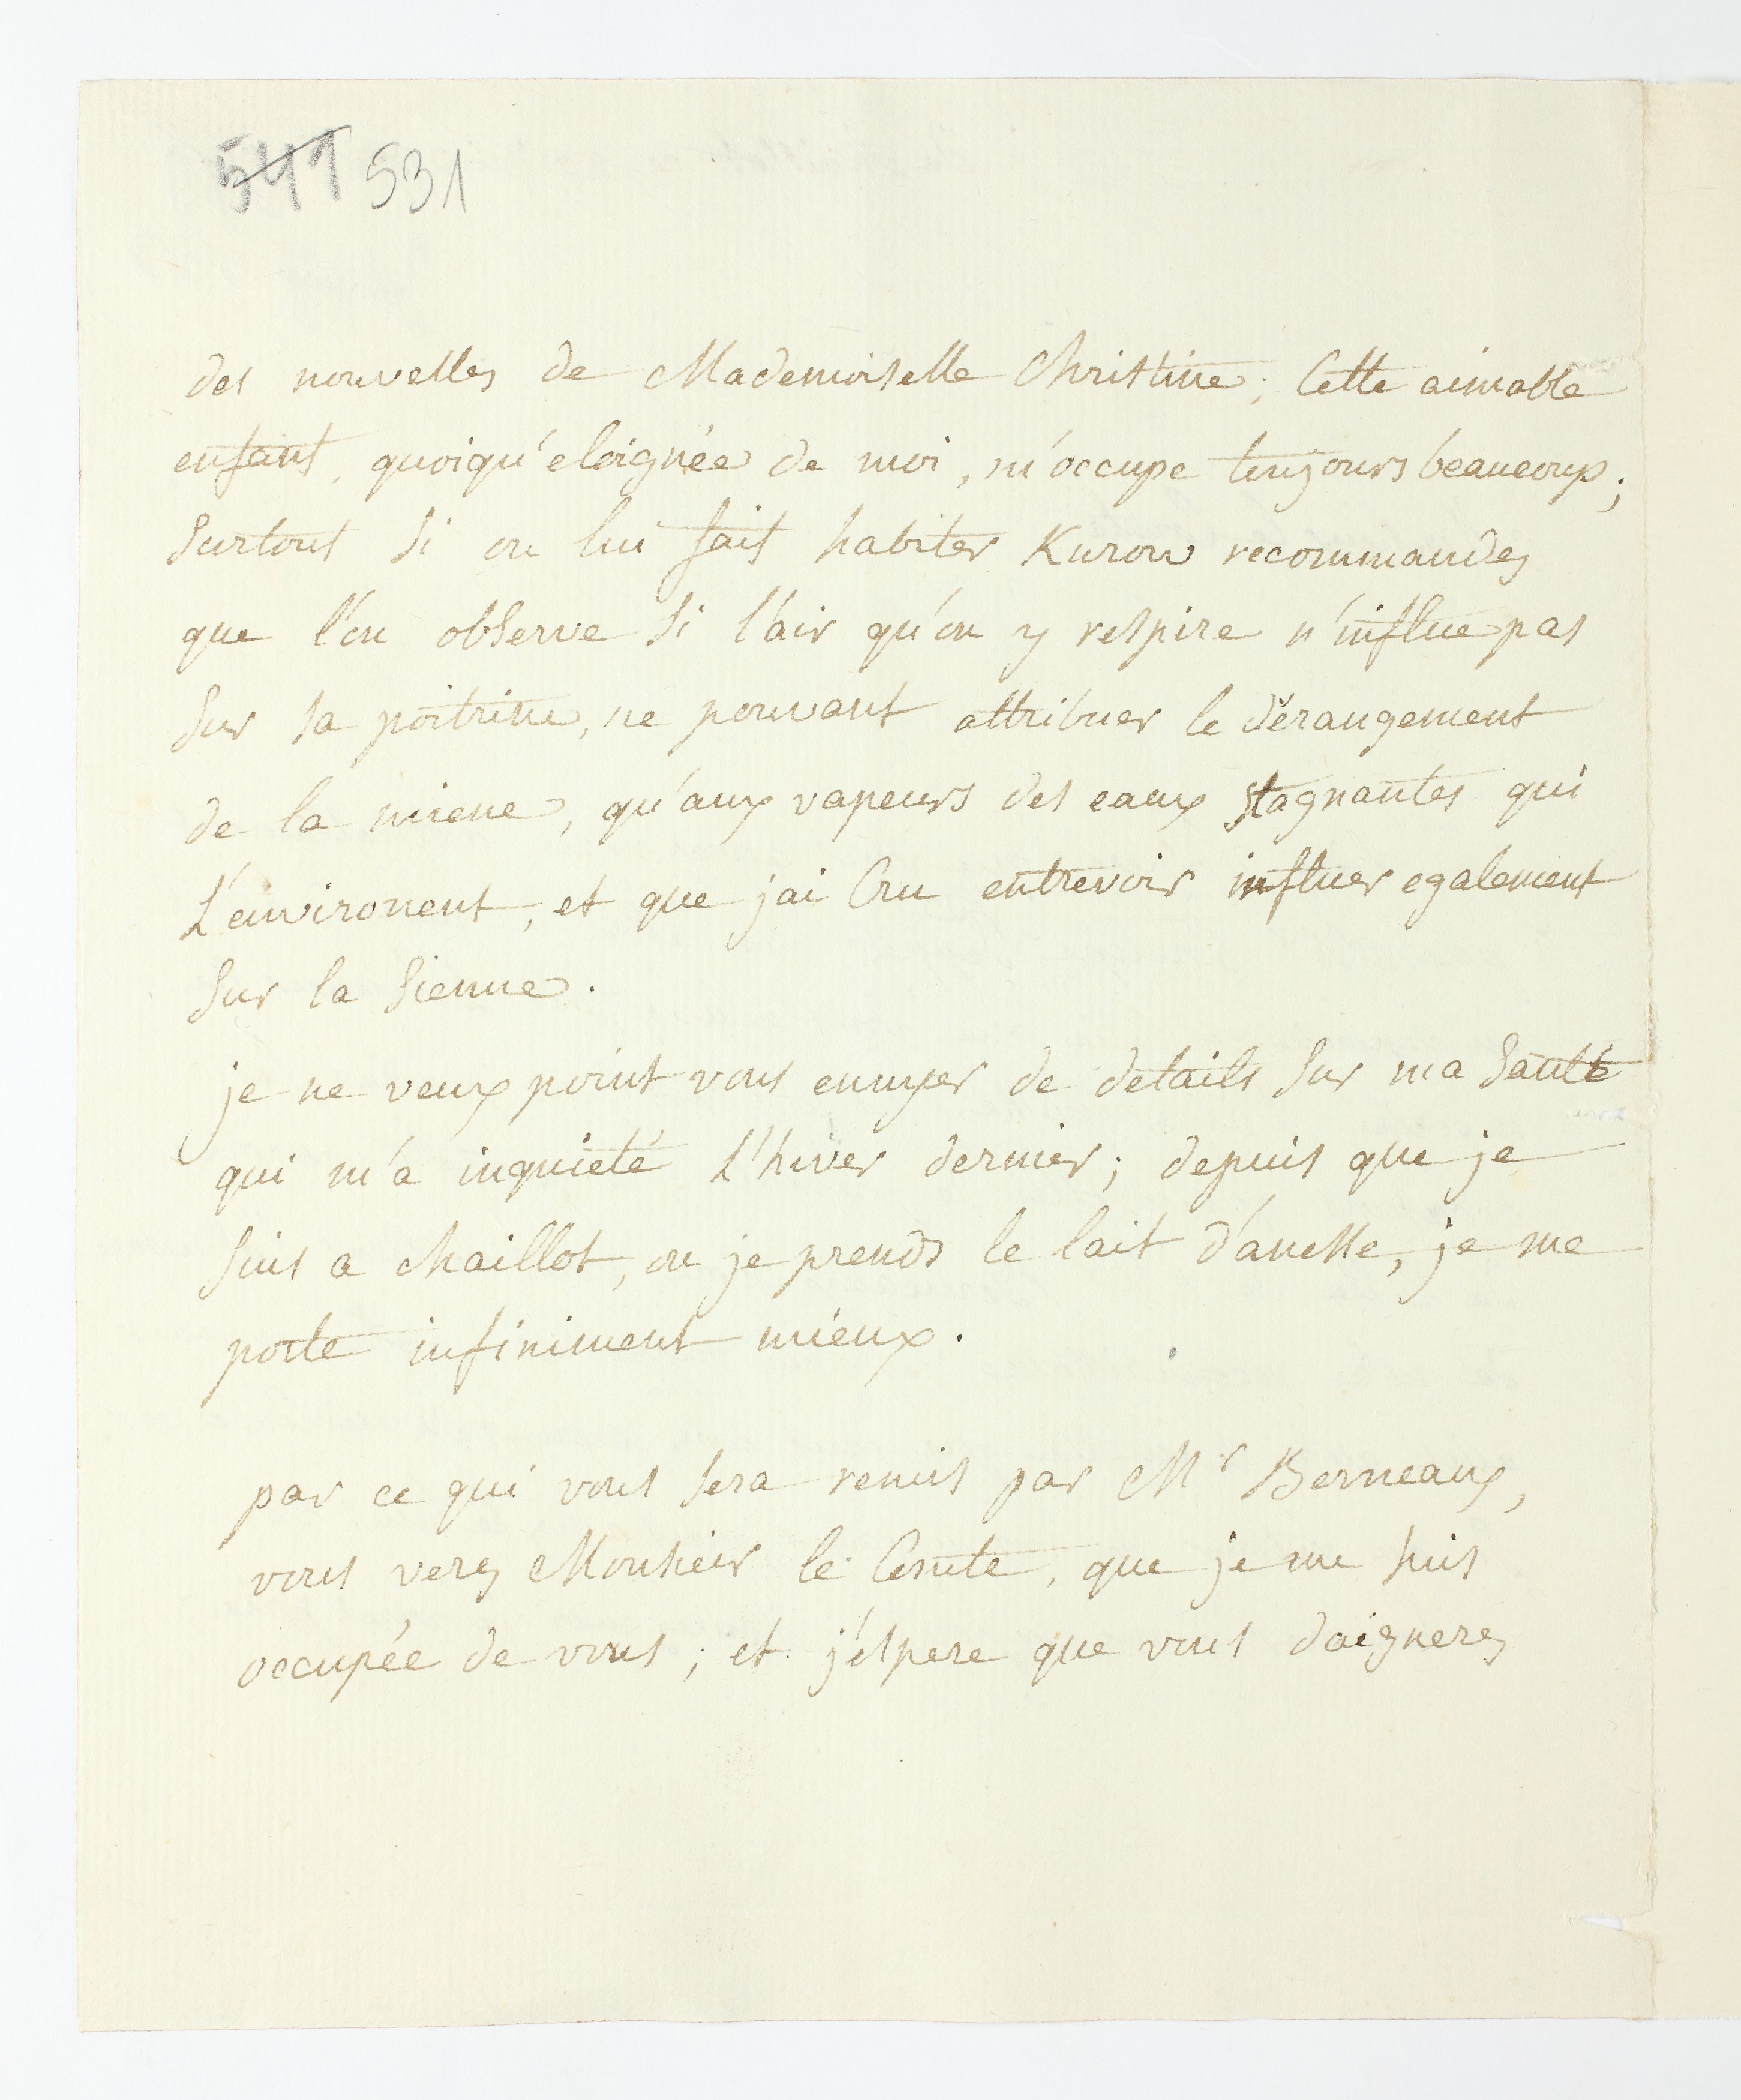 541 531
des nouvelles de Mademoiselle Christine; Cette aimable
enfant, quoiqu'eloignée de moi, m'occupe toujours beaucoup;
Surtout si on lui fait habiter Kurow recommandez
que l'on observe si l'air qu'on y respire n'influe pas
Sur sa poitrine, ne pouvant attribuer le dérangement
de la miene, qu'aux vapeurs des eaux stagnantes qui
L'environent, et que j'ai Cru entrevoir influer egalement
Sur la Sienne.
je ne veux point vous ennuyer de details Sur ma Santé
qui m'a inquieté L'hiver dernier; depuis que je
suis a Chaillot, ou je prends le lait d'anesse, je me
porte infiniment mieux.
par ce qui vous sera remis par Mr Berneaux,
vous verez Monsieur le Comte, que je me suis
occupée de vous; et j'éspere que vous daignerez